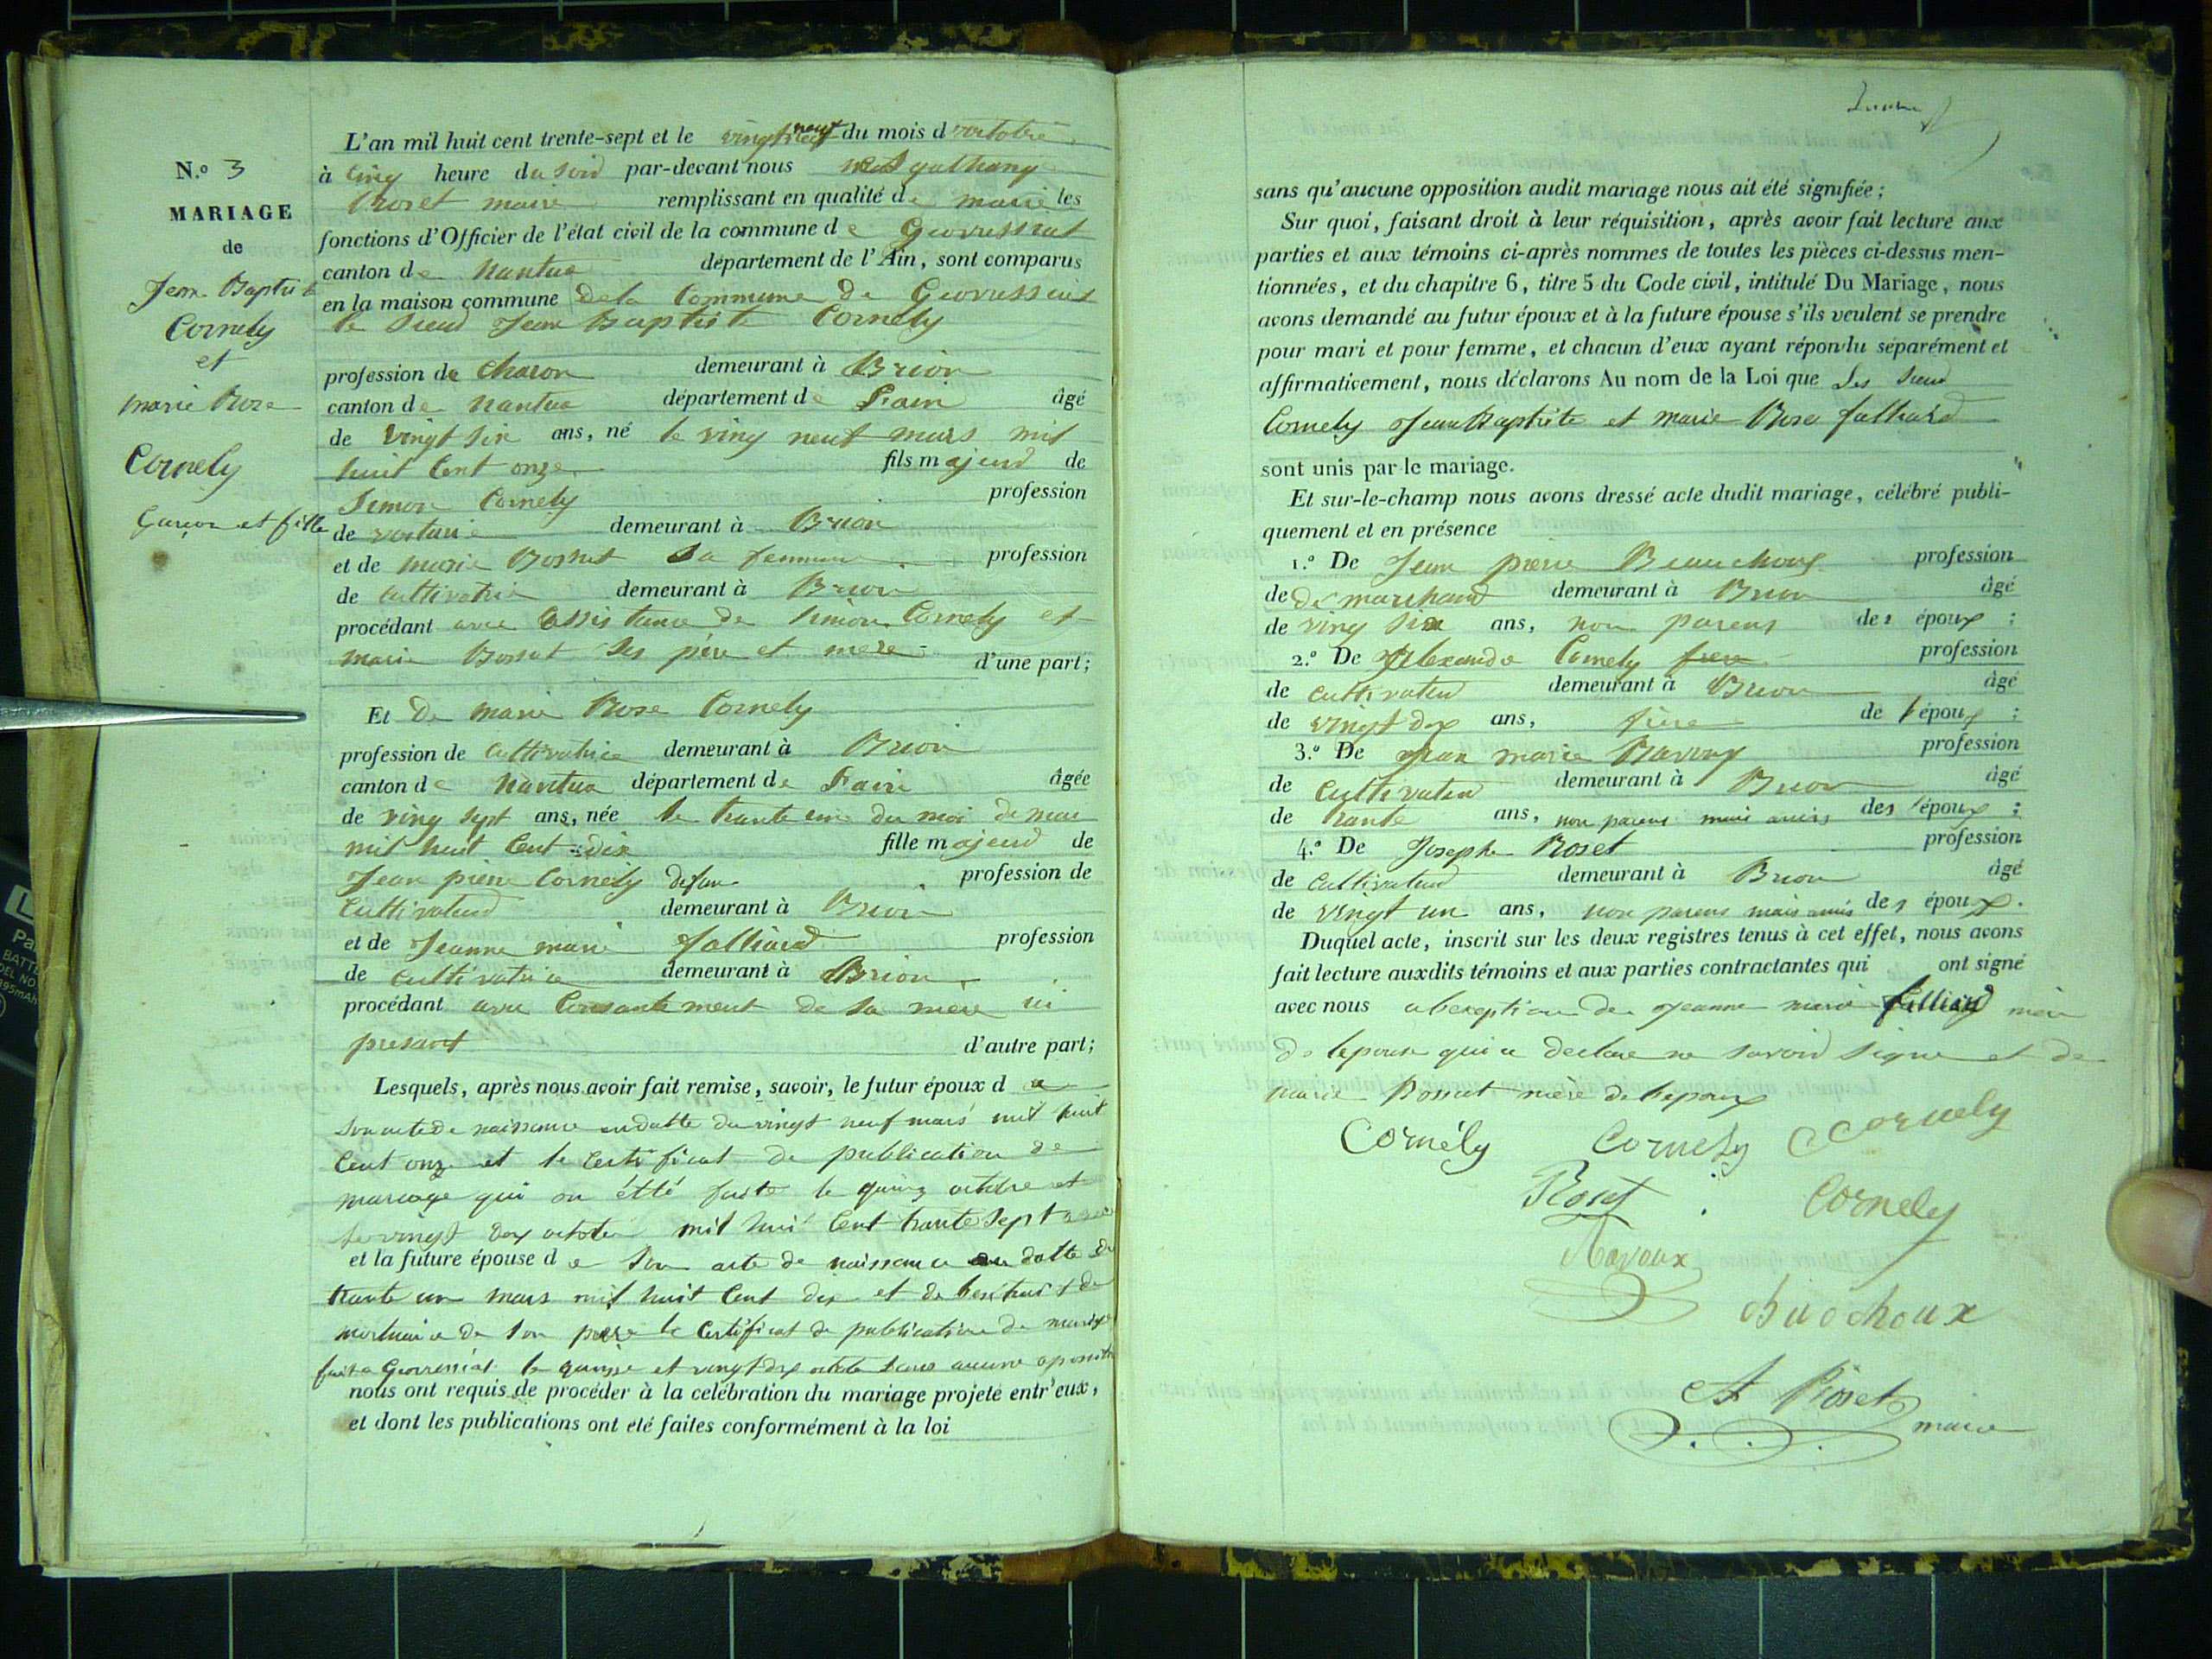 N.º 3
MARIAGE
de
Jean Baptiste
Cornely
et
marie Rose
Cornely
Garçon et fille
L'an mil huit cent trente-sept et le vingt neuf du mois d octobre
à cinq heure du soir par-devant nous
Roset maire remplissant en qualité de maire les
fonctions d'Officier de l'état civil de la commune de Geovressiat
canton de Nantua département de l'Ain, sont comparus
en la maison commune de la Commune de Geovressiat
le Sieur Jean Baptiste Cornely
profession de Charon demeurant à Brion
canton de Nantua département de Lain âgé
de vingt six ans, né le ving neuf mars mil
huit Cent onze fils majeur de
Simon Cornely profession
de demeurant à Brion
et de marie Bossut Sa femme profession
de Cultivatrice demeurant à Brion
procédant avec Assistance de Simon Cornely et
marie Bossut Ses père et mère d'une part;
Et De marie Rose Cornely
profession de Cultivatrice demeurant à Brion
canton de Nantua département de Lain âgée
de ving sept ans, née le trante un du moi de mar
mil huit Cent dix fille majeur de
Jean pierre Cornely defun profession de
Cultivateur demeurant à Brion
et de Jeanne marie Jalliard profession
de Cultivatrice demeurant à Brion
procédant avec Consantement de Sa mère ici
presant d'autre part;
Lesquels, après nous avoir fait remise, savoir, le futur époux d e
Son acte de naissance en datte du vingt neuf mars mil huit
Cent onze et le Certificat de publication de
mariage qui on étté faite le quinz octobre et
le vingt dex octobre mil huit Cent trante Sept
et la future épouse d e Son acte de naissance en datte du
trante un mars mil huit Cent dix et de lextrais de
mortuaire de Son père le Certificat de publication de mariage
fait a Geovressiat le quinze et vingt dex octobre Sans aucune oposition
nous ont requis de procéder à la celébration du mariage projeté entr'eux,
et dont les publications ont été faites conformément à la loi
sans qu'aucune opposition audit mariage nous ait été signifiée;
Sur quoi, faisant droit à leur réquisition, après avoir fait lecture aux
parties et aux témoins ci-après nommes de toutes les pièces ci-dessus men-
tionnées, et du chapitre 6, titre 5 du Code civil, intitulé Du Mariage, nous
avons demandé au futur époux et à la future épouse s'ils veulent se prendre
pour mari et pour femme, et chacun d'eux ayant répondu séparément et
affirmativement, nous déclarons Au nom de la Loi que Les Sieur
Cornely Jean Baptiste et marie Rose Jalliard
sont unis par le mariage.
Et sur-le-champ nous avons dressé acte dudit mariage, célébré publi-
quement et en présence
1.º De Jean pierre profession
de de marchand demeurant à Brion âgé
de ving six ans, non parens des époux;
2.º De Alexandre Cornely frere profession
de Cultivateur demeurant à Brion âgé
de vingt dex ans, frère de l'époux;
3.º De Jean marie profession
de Cultivateur demeurant à Brion âgé
de trante ans, non parens mais amis des époux;
4.º De Joseph Roset profession
de Cultivateur demeurant à Brion âgé
de vingt un ans, non parens mais amis des époux.
Duquel acte, inscrit sur les deux registres tenus à cet effet, nous avons
fait lecture auxdits témoins et aux parties contractantes qui ont signé
avec nous a lexeption de Jeanne marie Jalliard mère
de lepouse qui a declare ne savoir signe et de
marie Bossut mère de lepoux
Cornély Cornely Cornely
Roset Cornely
Ravoux
A Roset
maire